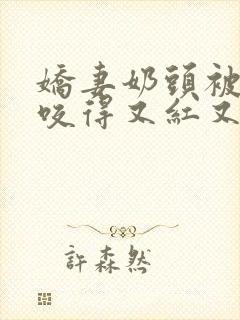 嬌妻奶頭被
咬得又紅又
許森然